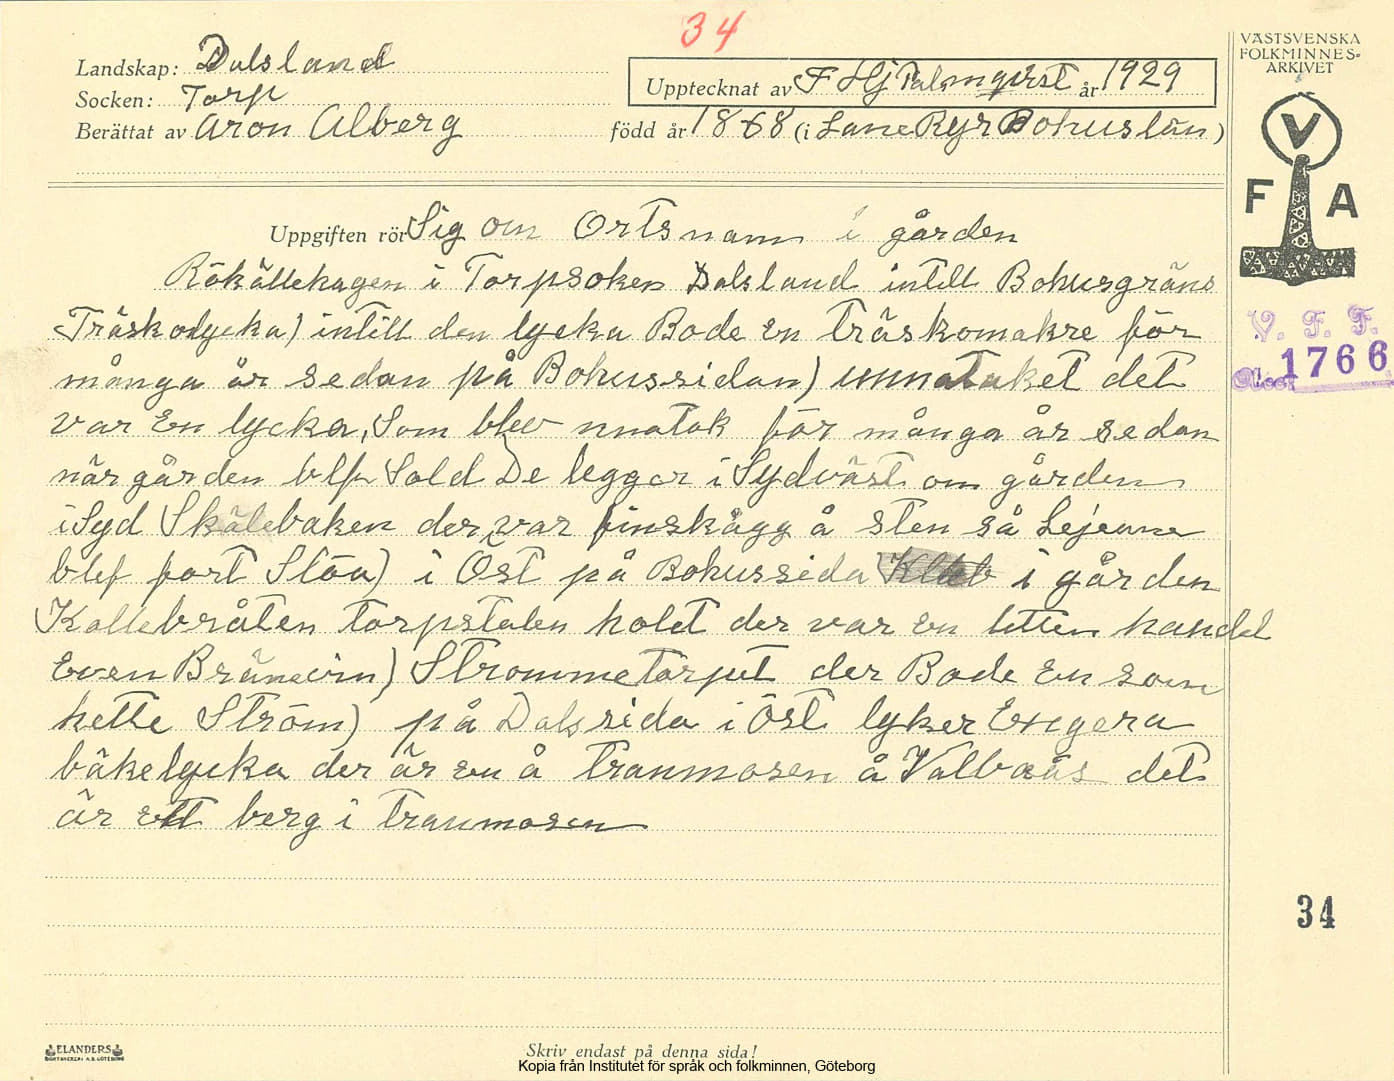 34
VÄSTSVENSKA
FOLKMINNES-
ARKIVET
Landskap: Dalsland
Upptecknat av F Hj Palmqvist år 1929
Socken: Torp
Berättat av Aron Alberg född år 1868 (i Lane Ryr Bohuslän)
V
F A
Uppgiften rör Sig om Ortsnamn i gården
Rökällehagen i Torpsoken Dalsland intill Bohusgräns
Träskolycka) intill den lycka Bode En träskomakre för
många år sedan på Bohussidan) unnataket det
var En lycka, Som blev nnatak för många år sedan
när gården blf Sold De legger i Sydväst om gården
i Syd Skälebaken der var finskägg å sten så Lejearne
blef fort Slöa) i Öst på Bohussida i gården
Kallebråten torpstalen holdt der var En litten handel
Even Bränevin) Strommetorpet der Bode En som
hette Ström) på Dalssida i Öst lyker Engera
bäkelycka der är en å Tranmosen å Valbоås det
är ett berg i Tranmosen
V. F. F.
Acc: 1766
34
ELANDERS
BOKTRYCKERI A.B. GÖTEBORG
Skriv endast på denna sida!
Kopia från Institutet för språk och folkminnen, Göteborg